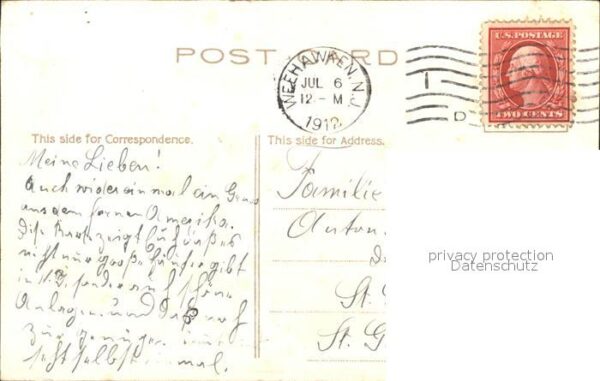 U.S. POSTAGE
POST CARD
WEEHAWKEN, N.J.
JUL 6
12-M
1912
D
TWO CENTS
This side for Correspondence.
This side for Address.
Meine Lieben!
Auch wieder einmal ein Gruss
aus dem fernen Amerika.
zeigt Euch, dass
nicht nur grosse Häuser gibt
in N.Y. sondern auch schöne
Anlagen. und das
zur
seht selbst einmal.
Familie
Anton
St.
St. G
privacy protection
Datenschutz